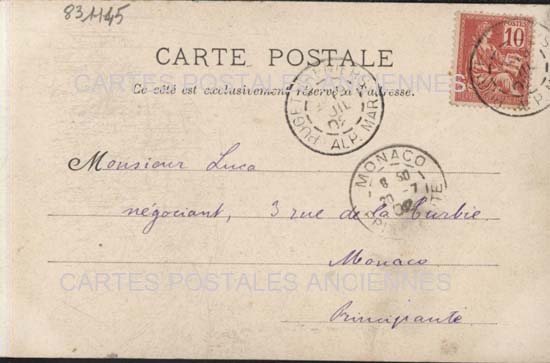 831145
CARTE POSTALE
Ce côté est exclusivement réservé à l'adresse.
CARTES POSTALES ANCIENNES
POSTES
10
PUGET-THENIERS
JUIL
02
ALP. MAR
MONACO
8 50
20 -7
02
PRINCIPAUTE
Monsieur Luca
négociant, 3 rue de la Turbie.
Monaco
CARTES POSTALES ANCIENNES
Principauté